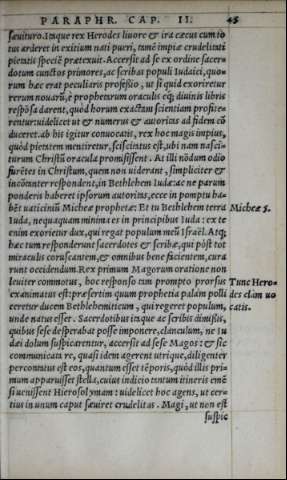 PARAPHR. CAP. II. 45
sæuituro. Itaque rex Herodes liuore & ira cæcus cum to
tus arderet in exitium nati pueri, tamē impiæ crudelitati
pietatis speciē prætexuit. Accersit ad se ex ordine sacer-
dotum cunctos primores, ac scribas populi Iudaici, quo-
rum hæc erat peculiaris professio, ut si quid exoriretur
rerum nouarū, è prophetarum oraculis eq́; diuinis libris
respōsa darent, quòd horum exactam scientiam profite-
rentur: uidelicet ut & numerus & autoritas ad fidem cō
duceret. ab his igitur conuocatis, rex hoc magis impius,
quòd pietatem mentiretur, sciscitatus est, ubi nam nasci-
turum Christū oracula promisissent. At illi nōdum odio
furētes in Christum, quem non uiderant, simpliciter &
incōtanter respondent, in Bethlehem Iudæ: ac ne parum
ponderis haberet ipsorum autoritas, ecce in promptu ha-
bēt uaticiniū Micheæ prophetæ: Et tu Bethlehem terra
Micheæ 5.
Iuda, nequaquam minima es in principibus Iuda: ex te
enim exorietur dux, qui regat populum meū Israël. Atq;
hæc tum responderunt sacerdotes & scribæ, qui pòst tot
miraculis coruscantem, & omnibus bene facientem, cura
runt occidendum. Rex primum Magorum oratione non
leuiter commotus, hoc responso tum prompto prorsus
Tunc Hero-
exanimatus est: præsertim quum prophetia palàm polli
des clam uo
ceretur ducem Bethlehemiticum, qui regeret populum,
catis.
unde natus esset. Sacerdotibus itaque ac scribis dimissis,
quibus sese desperabat posse imponere, clanculum, ne Iu
dæi dolum suspicarentur, accersit ad sese Magos: & sic
communicata re, quasi idem agerent utrique, diligenter
percontatus est eos, quantum esset tēporis, quòd illis pri-
mum apparuisset stella, cuius indicio tantum itineris emē
si uenissent Hierosolymam: uidelicet hoc agens, ut cer-
tius in unum caput sæuiret crudelitas. Magi, ut non est
suspic